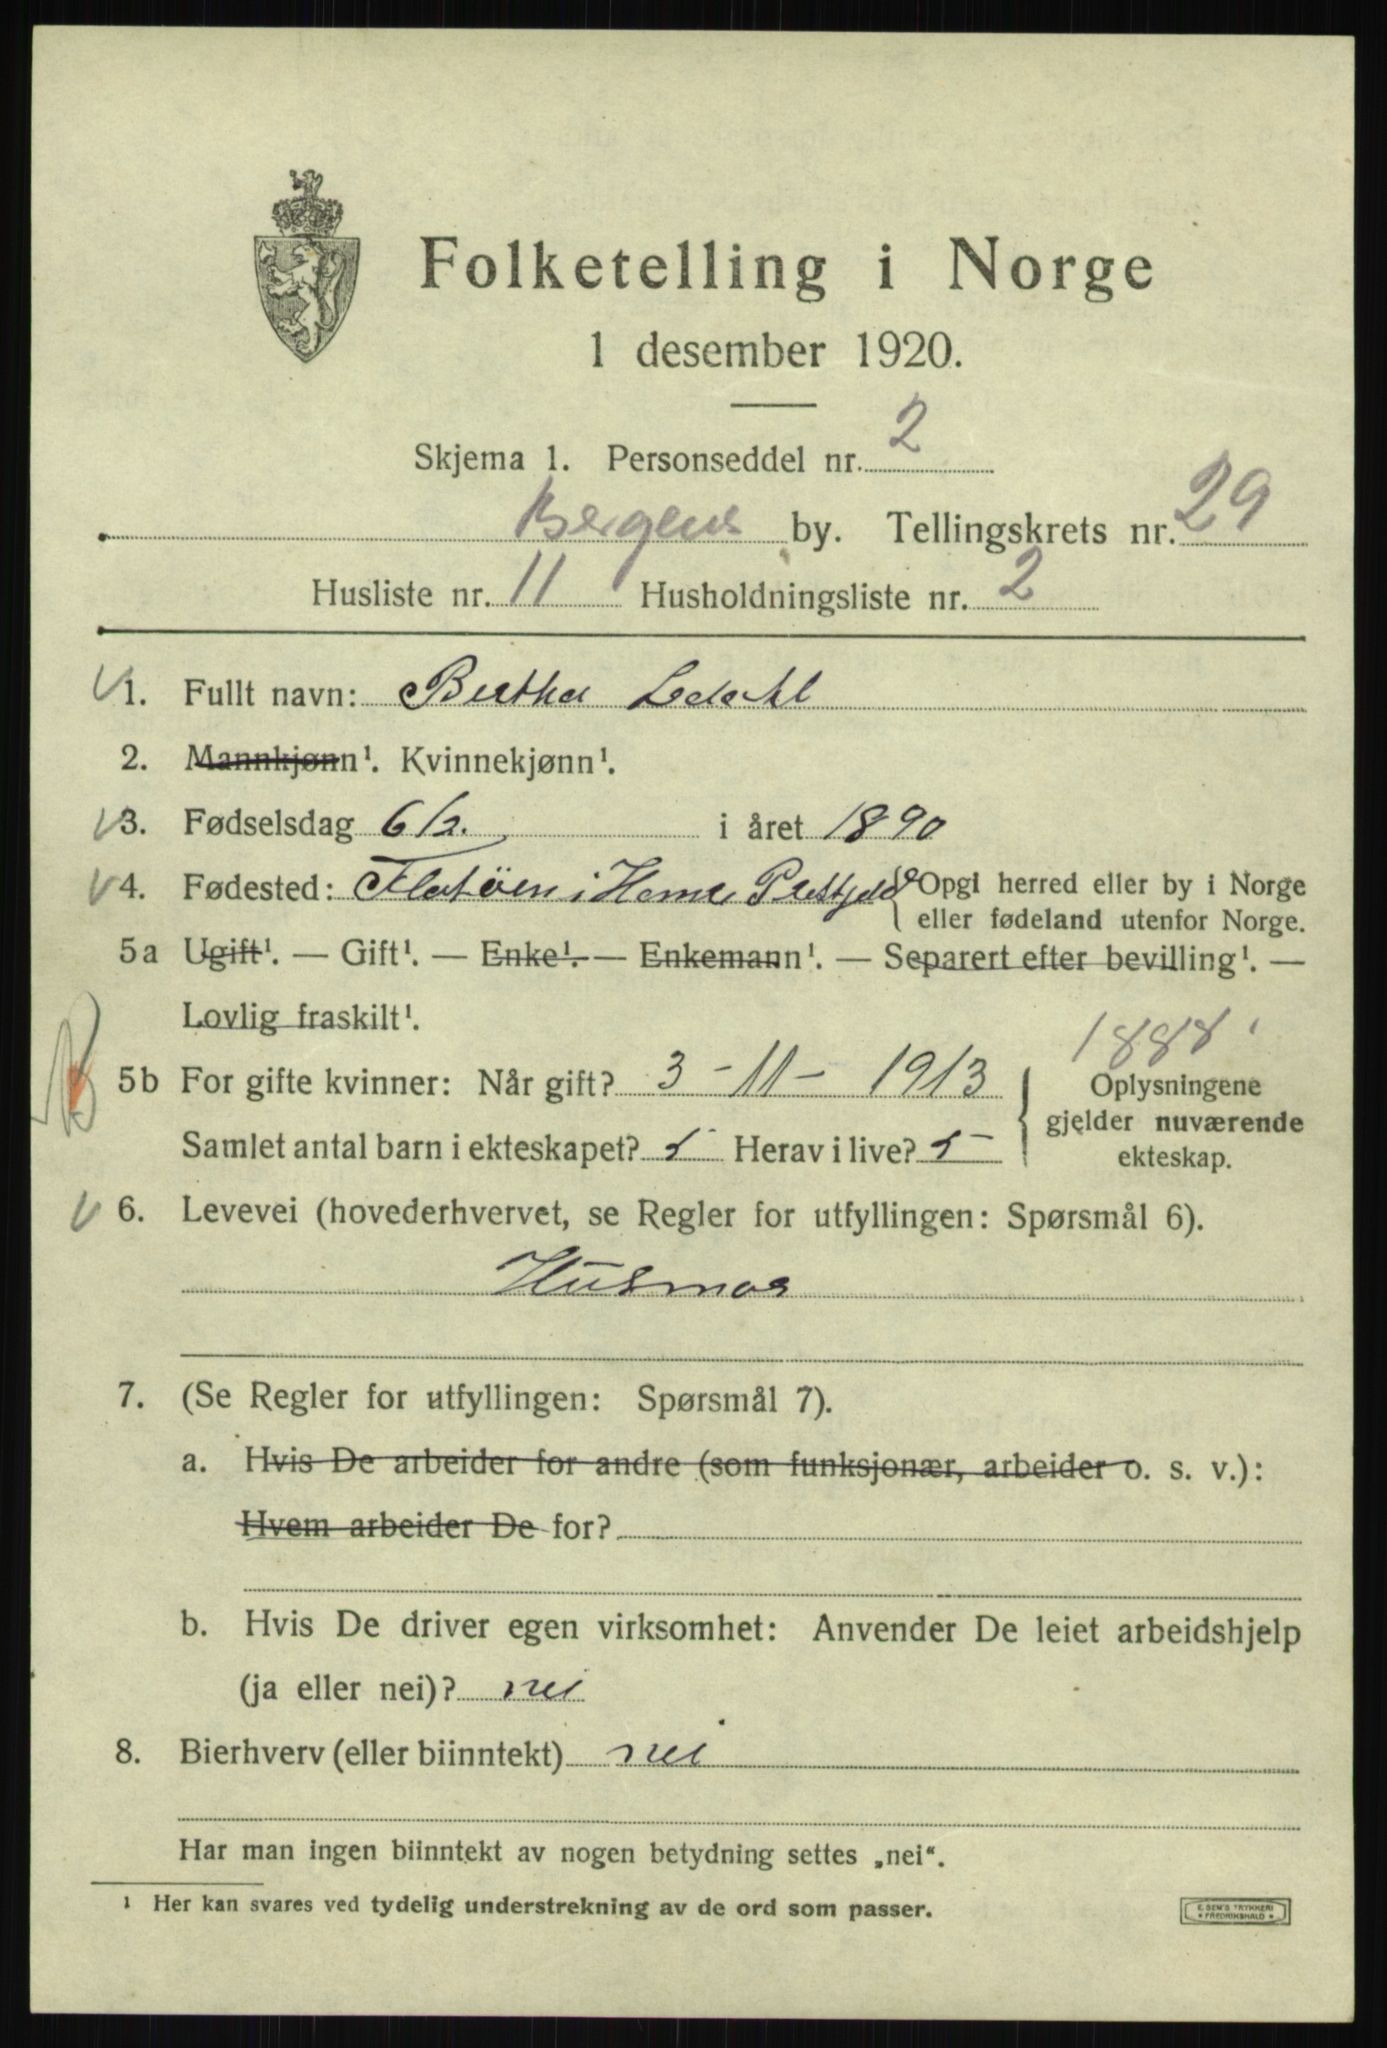 Folketelling i Norge
1 desember 1920.
Skjema 1. Personseddel nr. 2
Bergens by. Tellingskrets nr. 29
Husliste nr. 11 Husholdningsliste nr. 2
1. Fullt navn: Berthe Ledahl
2. Mannkjønn¹. Kvinnekjønn¹.
3. Fødselsdag 6/2. i året 1890
4. Fødested: Flatöen i Hamre Prestjeld { Opgi herred eller by i Norge
eller fødeland utenfor Norge.
5a Ugift¹. — Gift¹. — Enke¹. — Enkemann¹. — Separert efter bevilling¹. —
Lovlig fraskilt¹.
1888
5b For gifte kvinner: Når gift? 3 - 11 - 1913 { Oplysningene
gjelder nuværende
Samlet antal barn i ekteskapet? 5 Herav i live? 5
ekteskap.
6. Levevei (hovederhvervet, se Regler for utfyllingen: Spørsmål 6).
Husmor
7. (Se Regler for utfyllingen: Spørsmål 7).
a. Hvis De arbeider for andre (som funksjonær, arbeider o. s. v.):
Hvem arbeider De for?
b. Hvis De driver egen virksomhet: Anvender De leiet arbeidshjelp
(ja eller nei)? nei
8. Bierhverv (eller biinntekt) nei
Har man ingen biinntekt av nogen betydning settes „nei“.
¹ Her kan svares ved tydelig understrekning av de ord som passer.
E. SEM'S TRYKKERI
FREDRIKSHALD